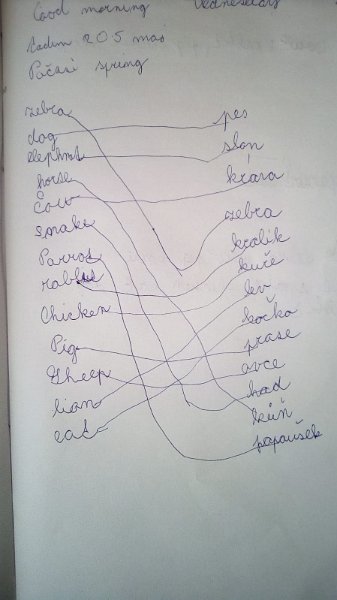 Good morning Vednesday
205
Počasi spring
zebra
dog
elephnt
horse
Cow
snake
Parrot
rabbit
Chicken
Pig
Sheep
lian
cat
pes
slon
kráva
zebra
kralik
kuře
lev
kočka
prase
ovce
had
kůň
papoušek